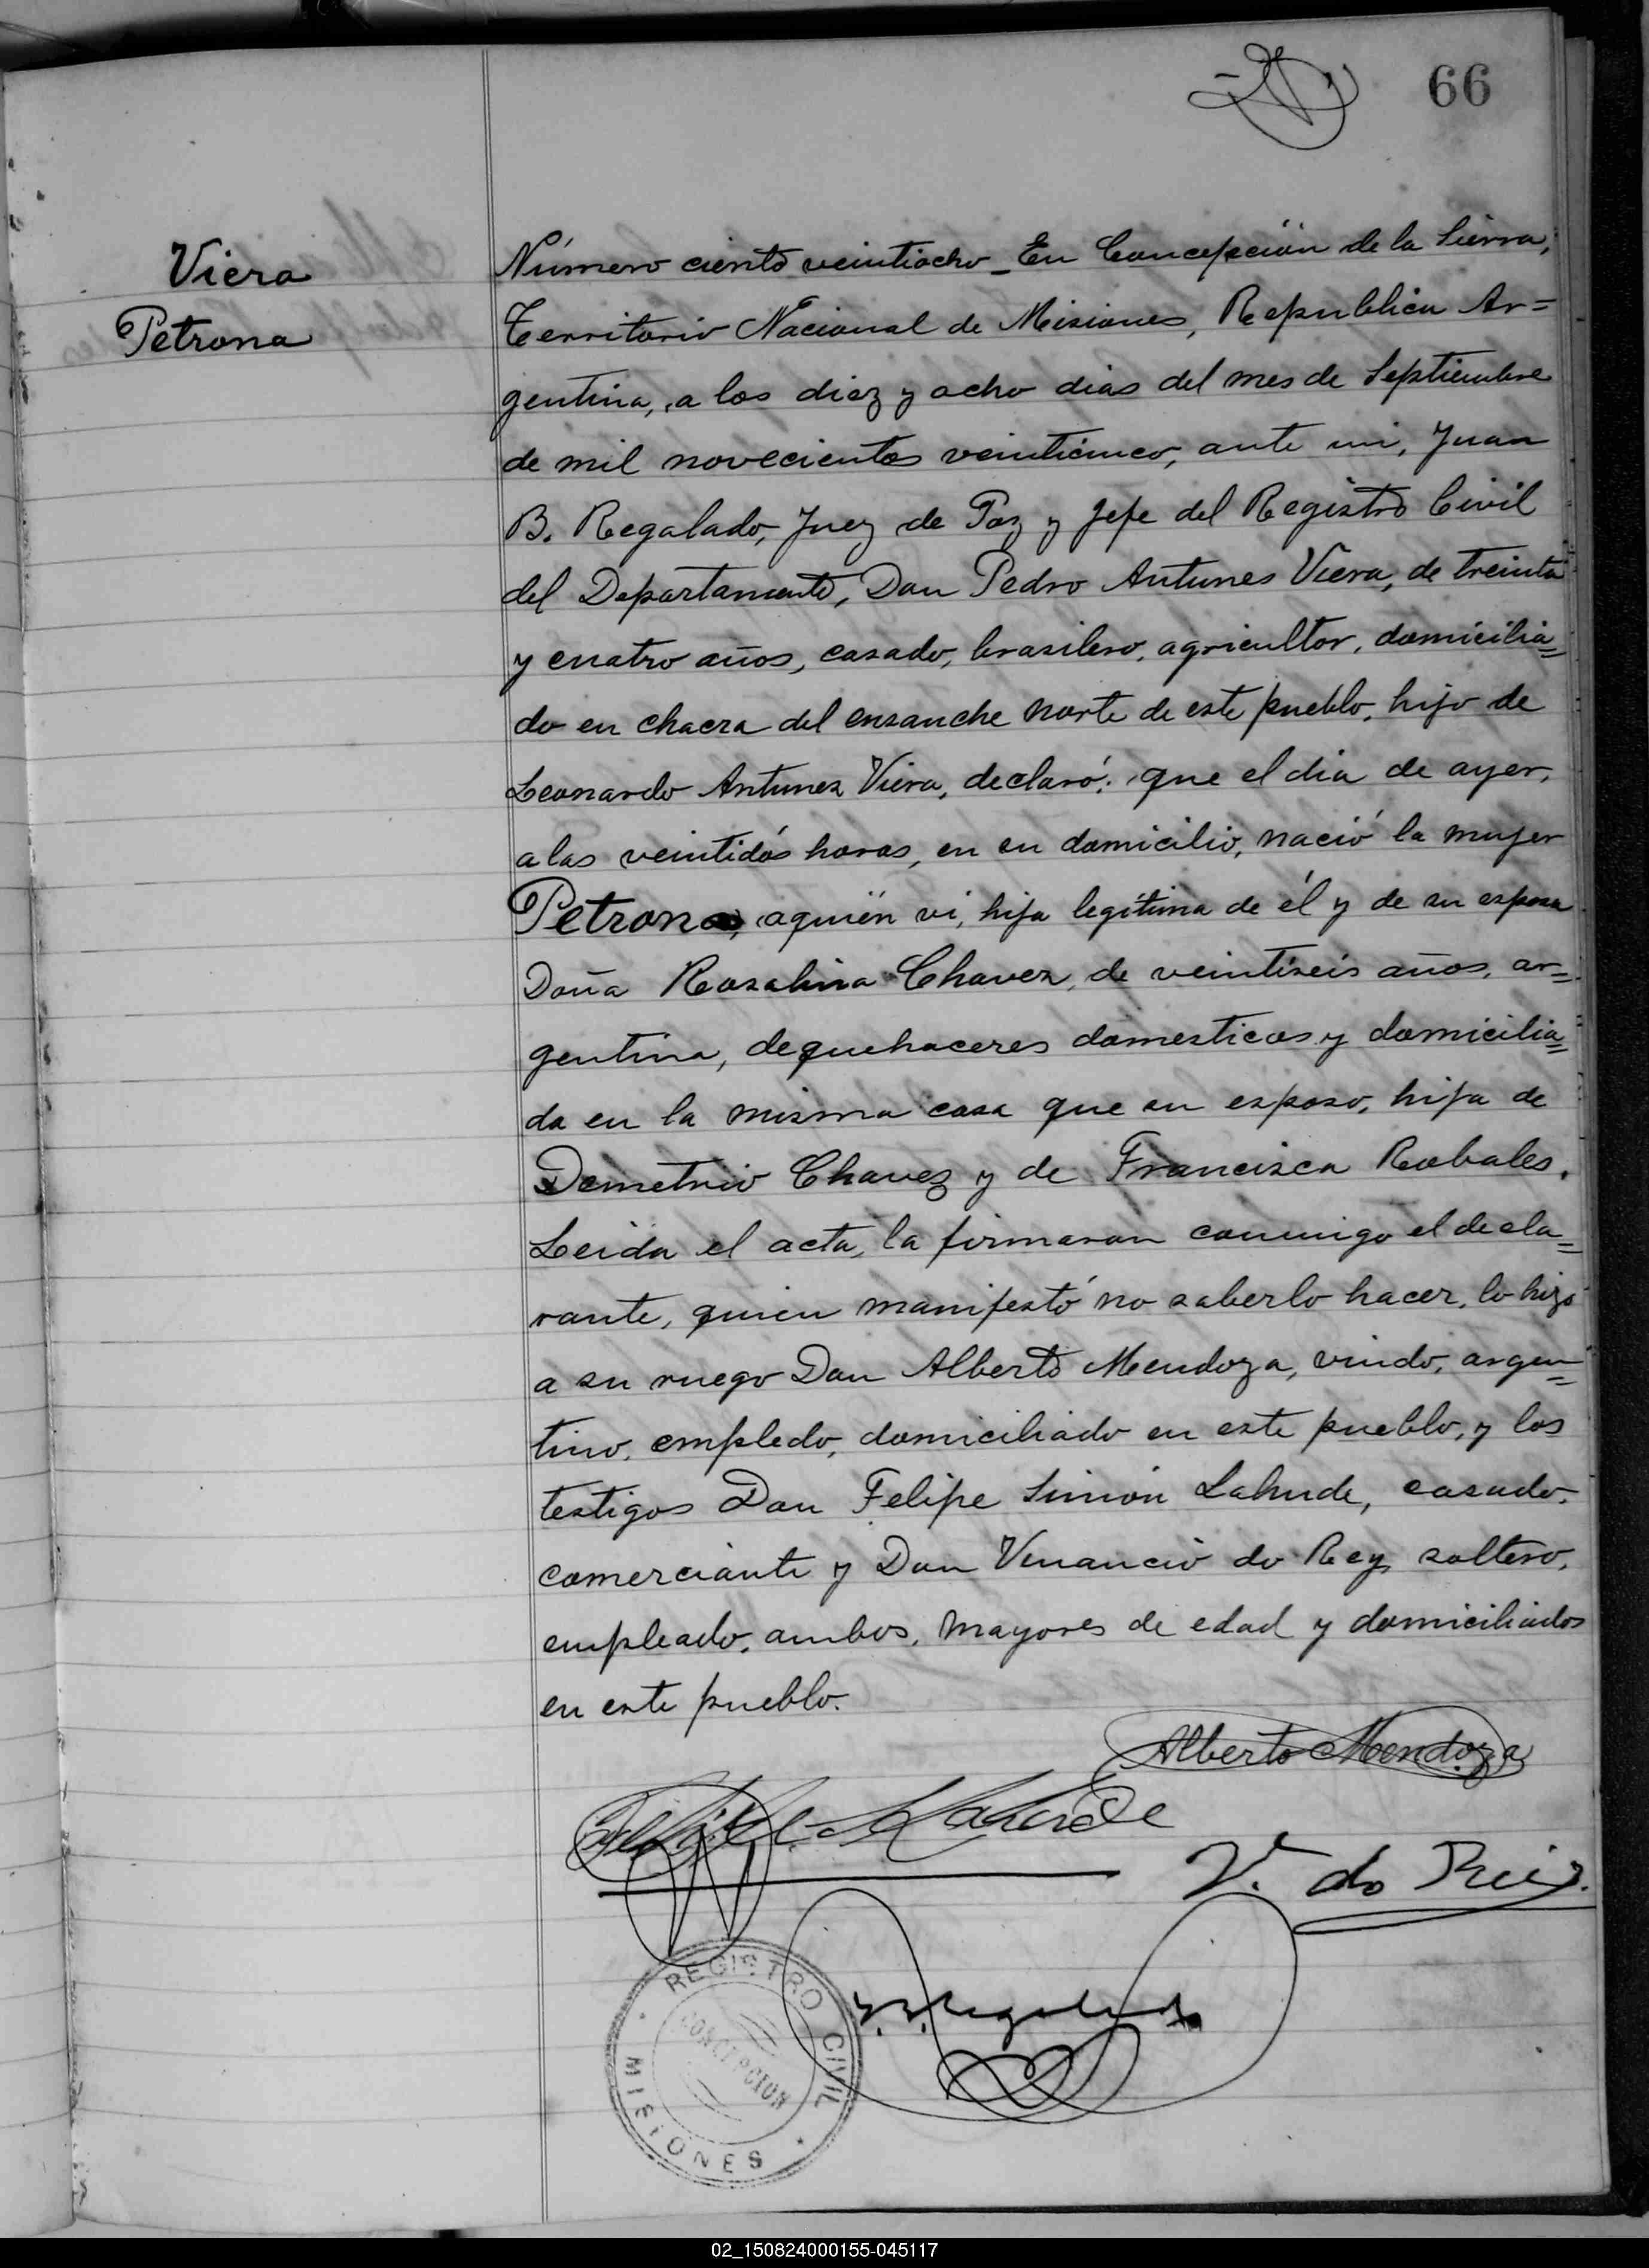 66
Viera
Petrona
Número ciento veintiocho_ En Concepción de la Sierra,
Territorio Nacional de Misiones, Republica Ar=
gentina, a los diez y ocho dias del mes de Septiembre
de mil novecientos veinticinco, ante mi, Juan
B. Regalado, Juez de Paz y Jefe del Registro Civil
del Departamento, Don Pedro Antunes Viera, de treinta
y cuatro años, casado, brasilero, agricultor, domicilia=
do en chacra del ensanche norte de este pueblo, hijo de
Leonardo Antunez Viera, declaró: que el dia de ayer,
a las veintidós horas, en su domicilio, nació la mujer
Petrona, a quién vi, hija legítima de él y de su esposa
Doña Rosalina Chavez, de veintiseis años, ar=
gentina, de quehaceres domesticos y domicilia=
da en la misma casa que su esposo, hija de
Demetrio Chavez y de Francisca Robales.
Leida el acta, la firmaron conmigo el decla=
rante, quien manifestó no saberlo hacer, lo hizo
a su ruego Don Alberto Mendoza, viudo, argen=
tino, empledo, domiciliado en este pueblo, y los
testigos Don Felipe Simón Lahude, casado,
comerciante y Don Venancio do Rey, soltero,
empleado, ambos, mayores de edad y domiciliados
en este pueblo.
Alberto Mendoza
Felipe S. Lahude
V. do Rey.
J. B. Regalado
REGISTRO CIVIL
CONCEPCION
MISIONES
02_150824000155-045117